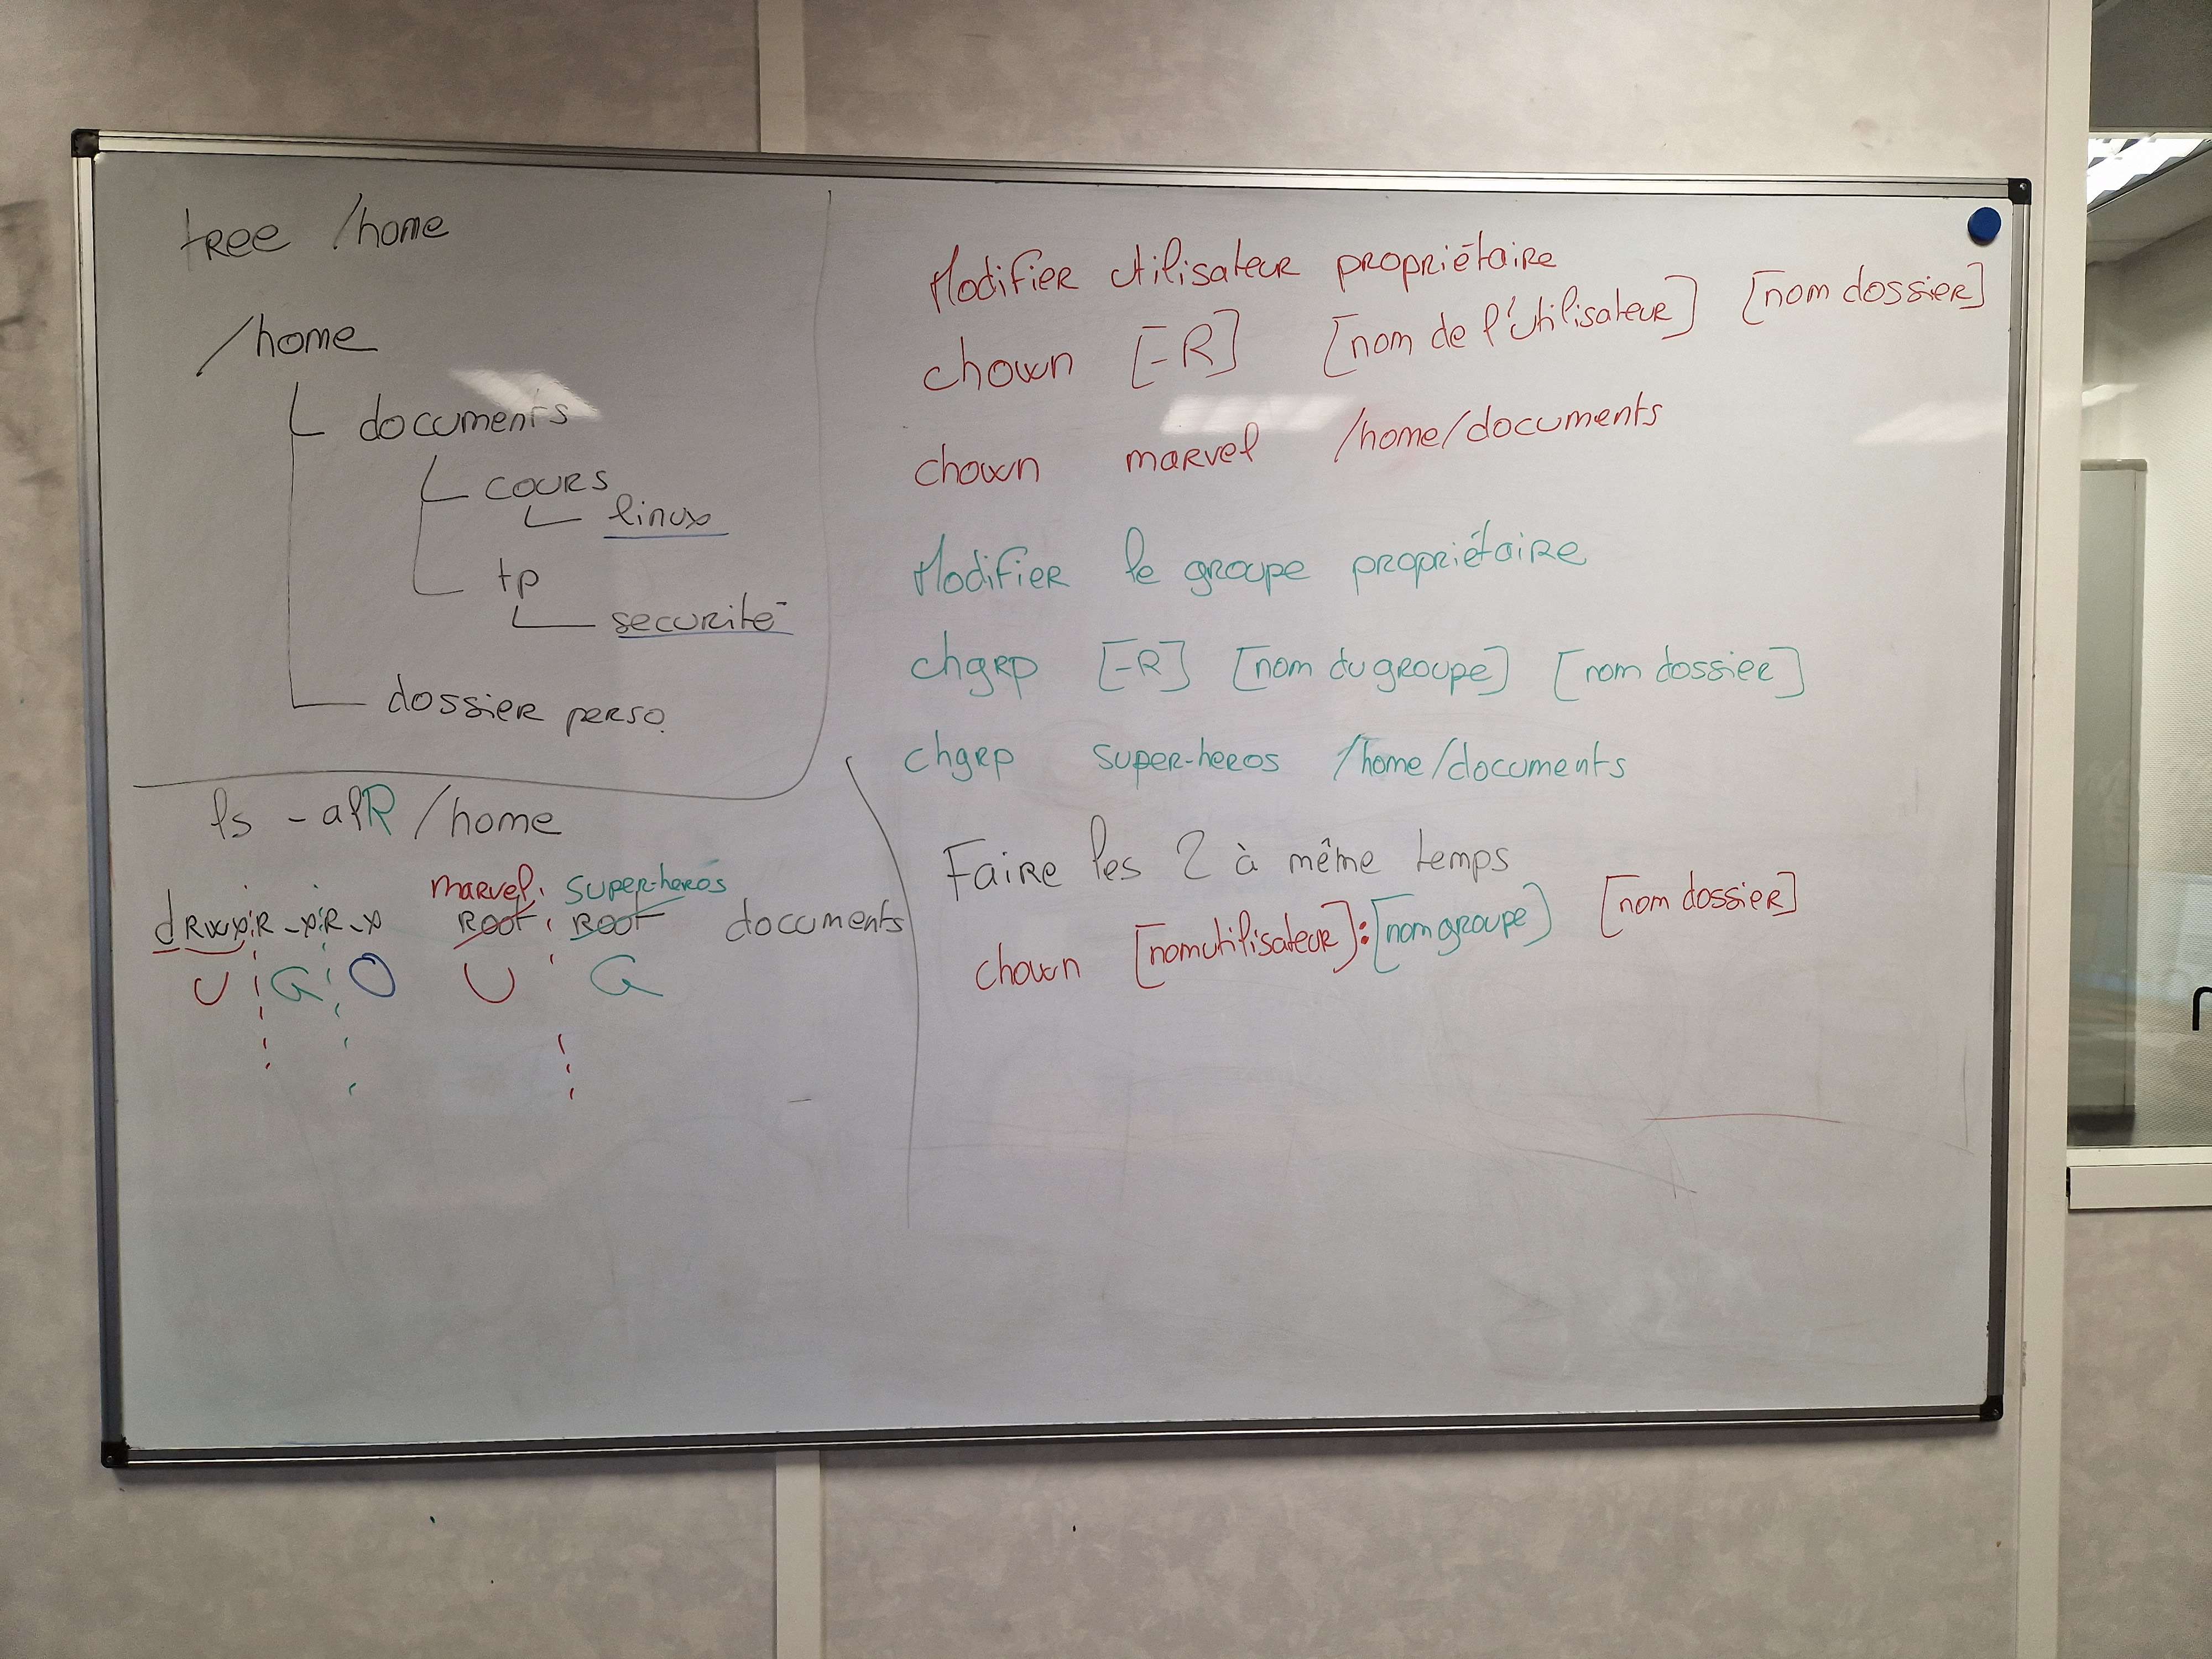 tree /home
/home
documents
cours
linux
tp
securité
dossier perso
ls -alR /home
marvel super-heros
drwxr-xr-x root root documents
U G O U G
Modifier utilisateur propriétaire
chown [-R] [nom de l'utilisateur] [nom dossier]
chown marvel /home/documents
Modifier le groupe propriétaire
chgrp [-R] [nom du groupe] [nom dossier]
chgrp super-heros /home/documents
Faire les 2 à même temps
chown [nom utilisateur]:[nom groupe] [nom dossier]